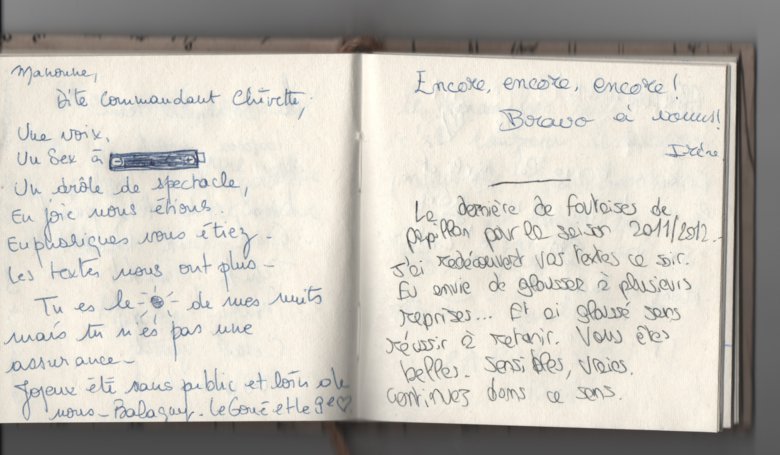 Manonne,
Dite Commandant Chèvette,
Une voix,
Un Sex à
Un drôle de spectacle,
En joie nous étions.
Euphoriques vous étiez -
Les textes nous ont plus -
Tu es le de mes nuits
mais tu n'es pas une
assurance -
Joyeux été sans public et loin de
nous - Balaguy. Le Goué et le 9e ♡
Encore, encore, encore !
Bravo à vous !
Irène
La dernière de foutaises de
papillon pour la saison 2011/2012.
J'ai redécouvert vos textes ce soir.
Eu envie de glousser à plusieurs
reprises... Et ai gloussé sans
réussir à retenir. Vous êtes
belles. Sensibles, vraies.
Continuez dans ce sens.